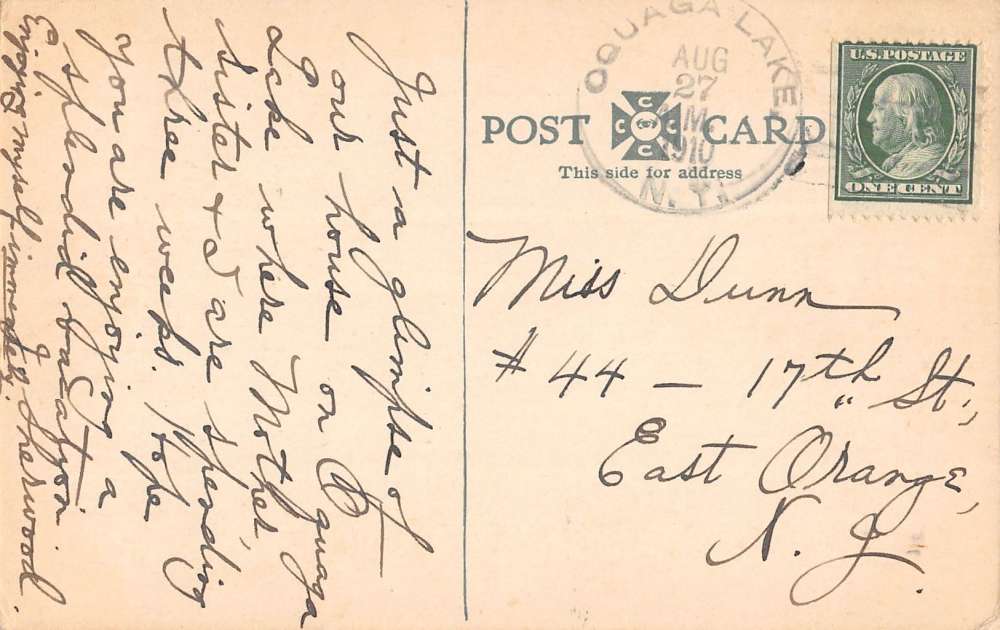 Just a glimpse of
our house on Oquaga
Lake where Mother,
sister & I are spending
three weeks. Hope
you are enjoying a
splendid vacation.
E. J. Sherwood.
Enjoying myself immensely.
OQUAGA LAKE
AUG
27
1910
N.Y.
POST CARD
This side for address
U.S. POSTAGE
ONE CENT
Miss Dunn
# 44 — 17th St.,
East Orange,
N. J.